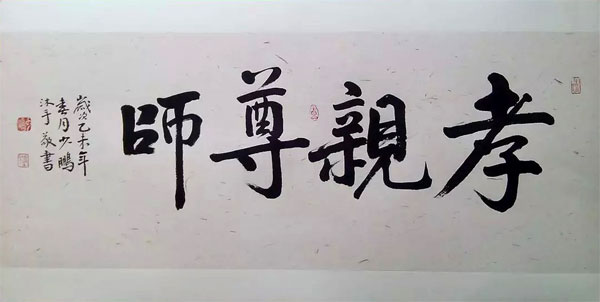 孝親尊師
歲次乙未年
春月少鵬
沐手敬書